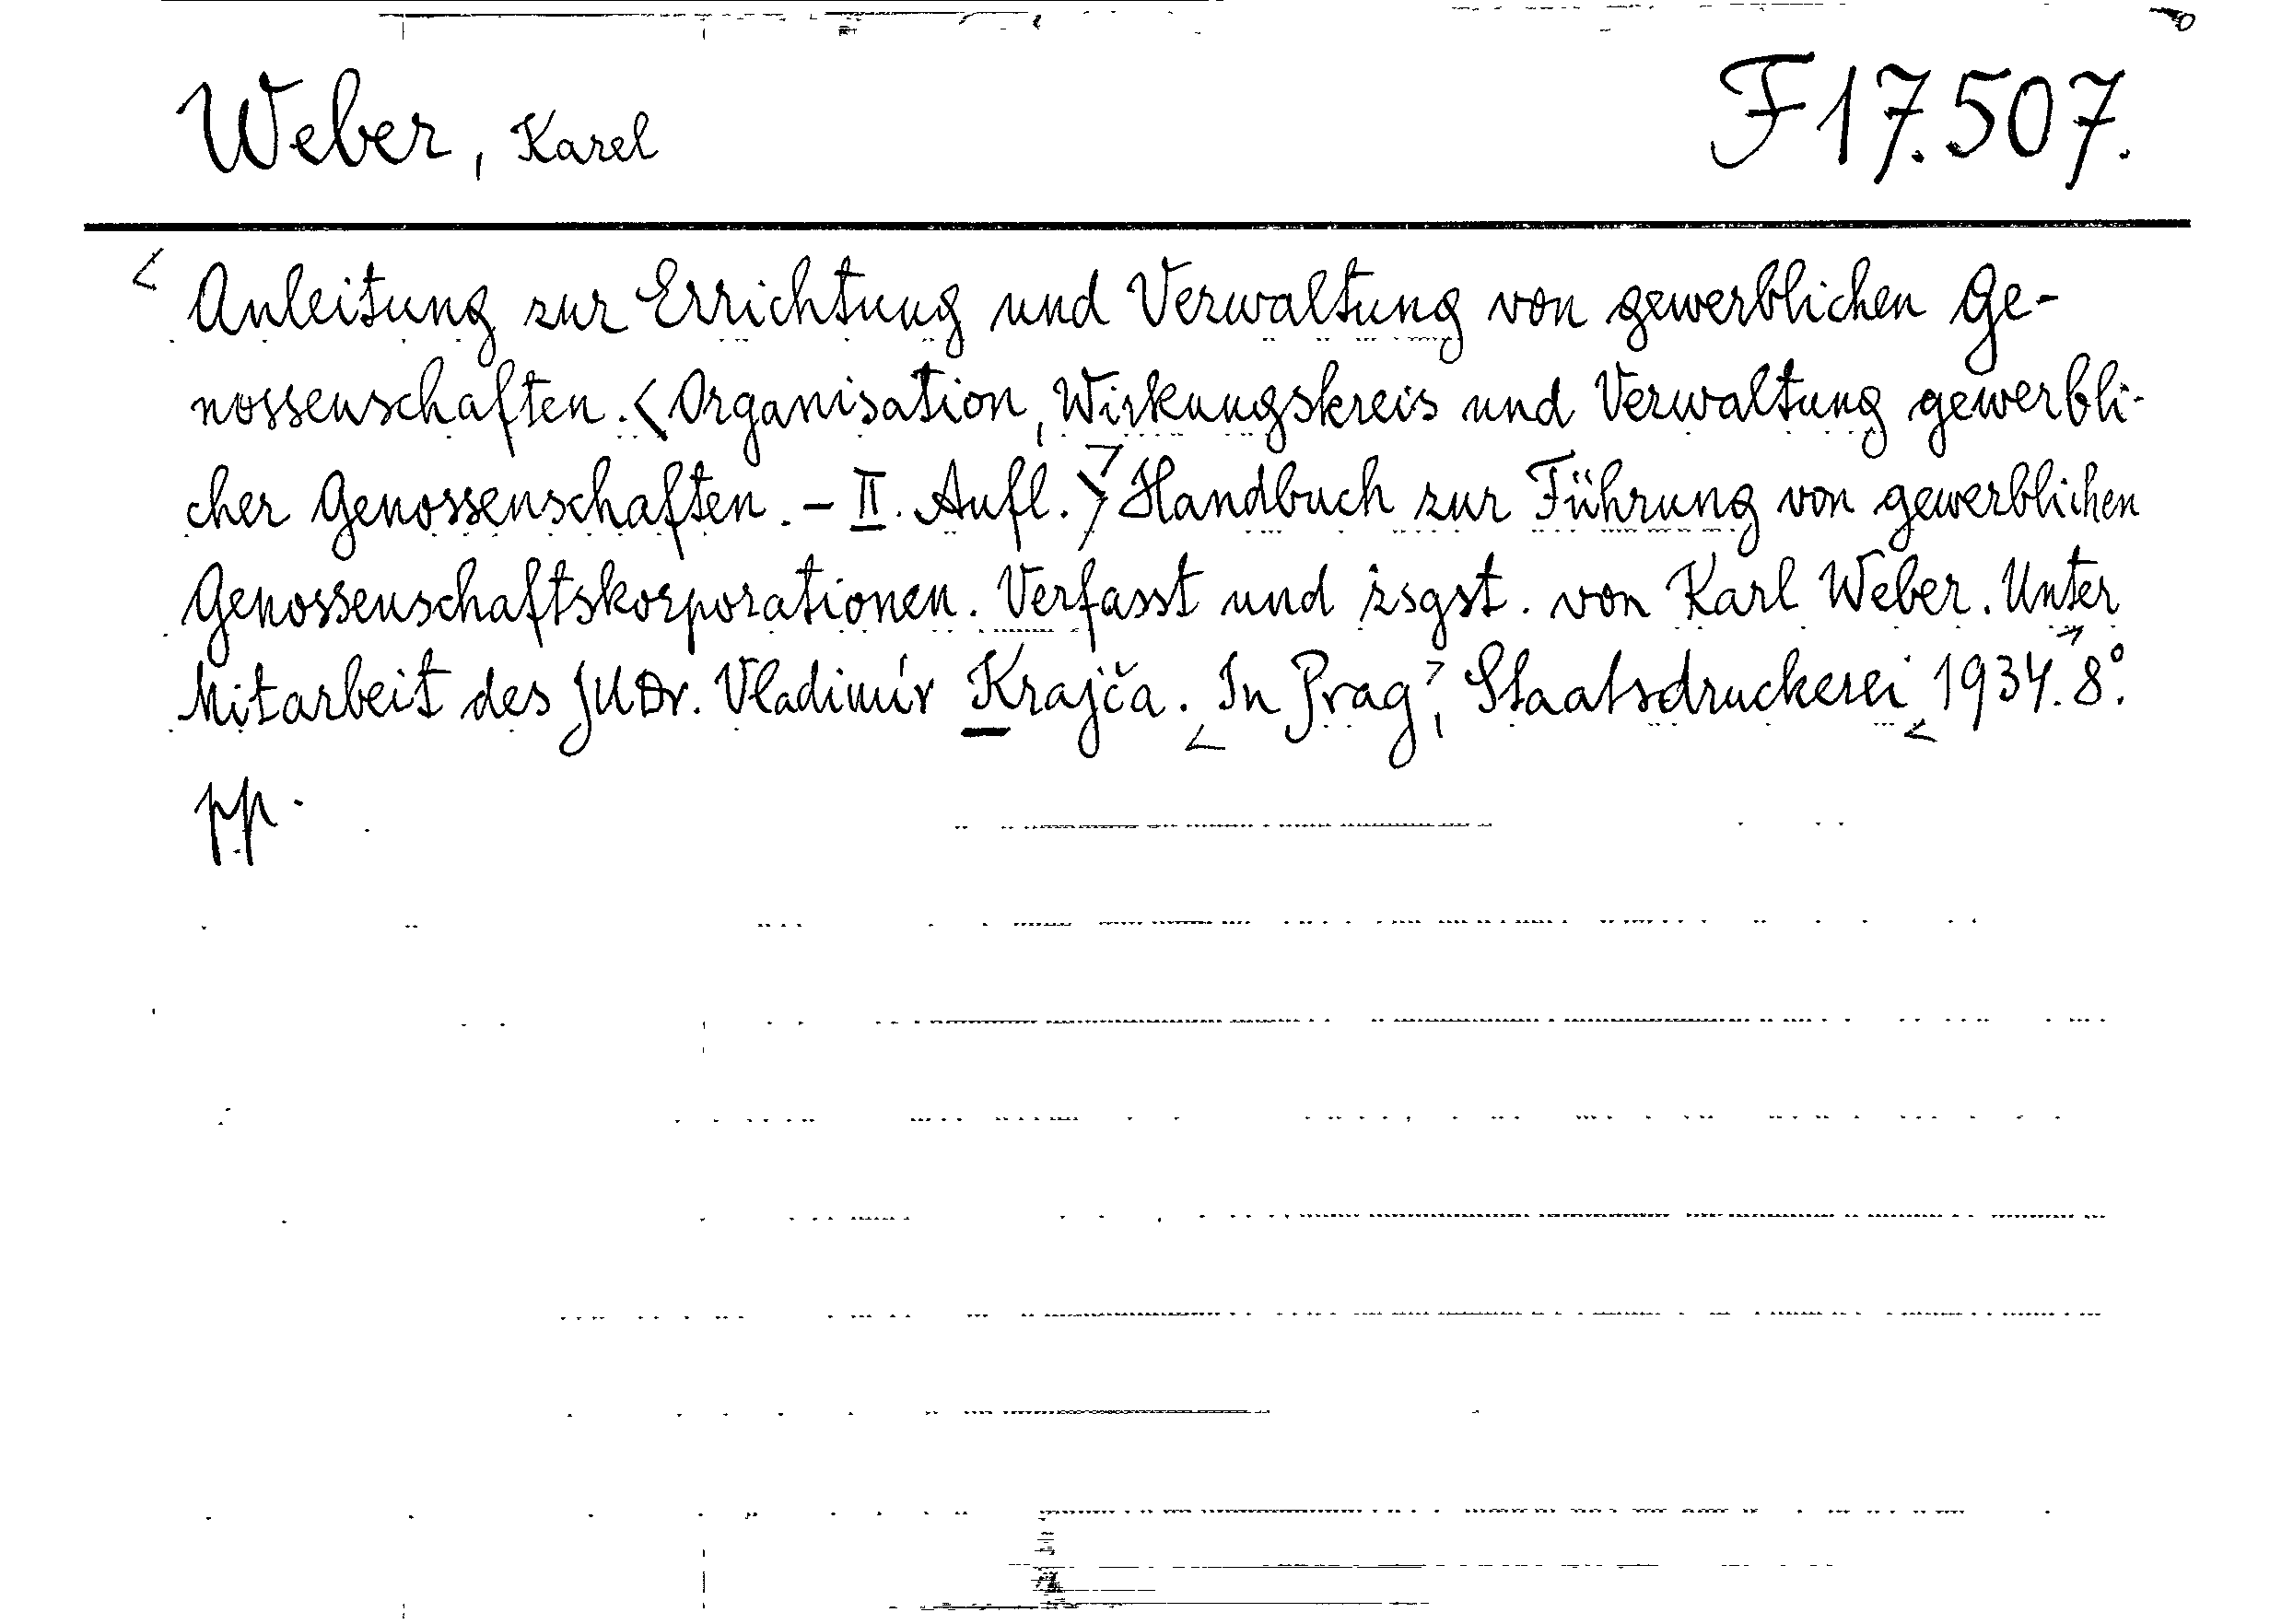 Weber, Karel F 17.507.
< Anleitung zur Errichtung und Verwaltung von gewerblichen Ge-
nossenschaften. < Organisation, Wirkungskreis und Verwaltung gewerbli-
cher Genossenschaften. - II. Aufl. > > Handbuch zur Führung von gewerblichen
Genossenschaftskorporationen. Verfasst und zsgst. von Karl Weber. Unter
Mitarbeit des JUDr. Vladimír Krajča. < In Prag >, Staatsdruckerei < 1934. > 8°.
pp.